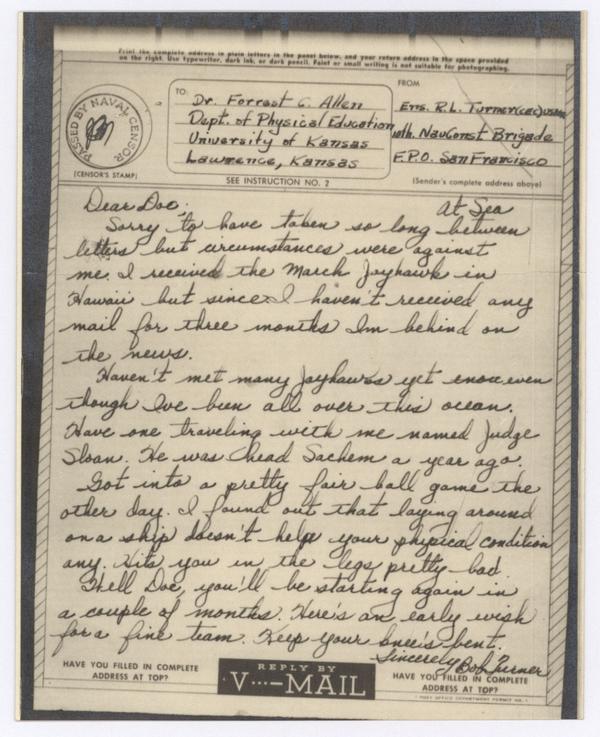 Print the complete address in plain letters in the panel below, and your return address in the space provided
on the right. Use typewriter, dark ink, or dark pencil. Faint or small writing is not suitable for photographing.
PASSED BY NAVAL CENSOR
(CENSOR'S STAMP)
TO:
Dr. Forrest C. Allen
Dept. of Physical Education
University of Kansas
Lawrence, Kansas
SEE INSTRUCTION NO. 2
FROM
Ens. R.L. Turner (CEC) USNR
NavConst Brigade
F.P.O. San Francisco
(Sender's complete address above)
At Sea
Dear Doc,
Sorry to have taken so long between
letters but circumstances were against
me. I received the March Jayhawk in
Hawaii but since I haven't received any
mail for three months Im behind on
the news.
Haven't met many Jayhawks yet even
though I've been all over this ocean.
Have one traveling with me named Judge
Sloan. He was head Sachem a year ago.
Got into a pretty fair ball game the
other day. I found out that laying around
on a ship doesn't help your physical condition
any. Hits you in the legs pretty bad.
Well Doc, you'll be starting again in
a couple of months. Here's an early wish
for a fine team. Keep your knee's bent.
Sincerely Bob Turner
HAVE YOU FILLED IN COMPLETE
ADDRESS AT TOP?
REPLY BY
V···—MAIL
HAVE YOU FILLED IN COMPLETE
ADDRESS AT TOP?
POST OFFICE DEPARTMENT PERMIT NO. 1